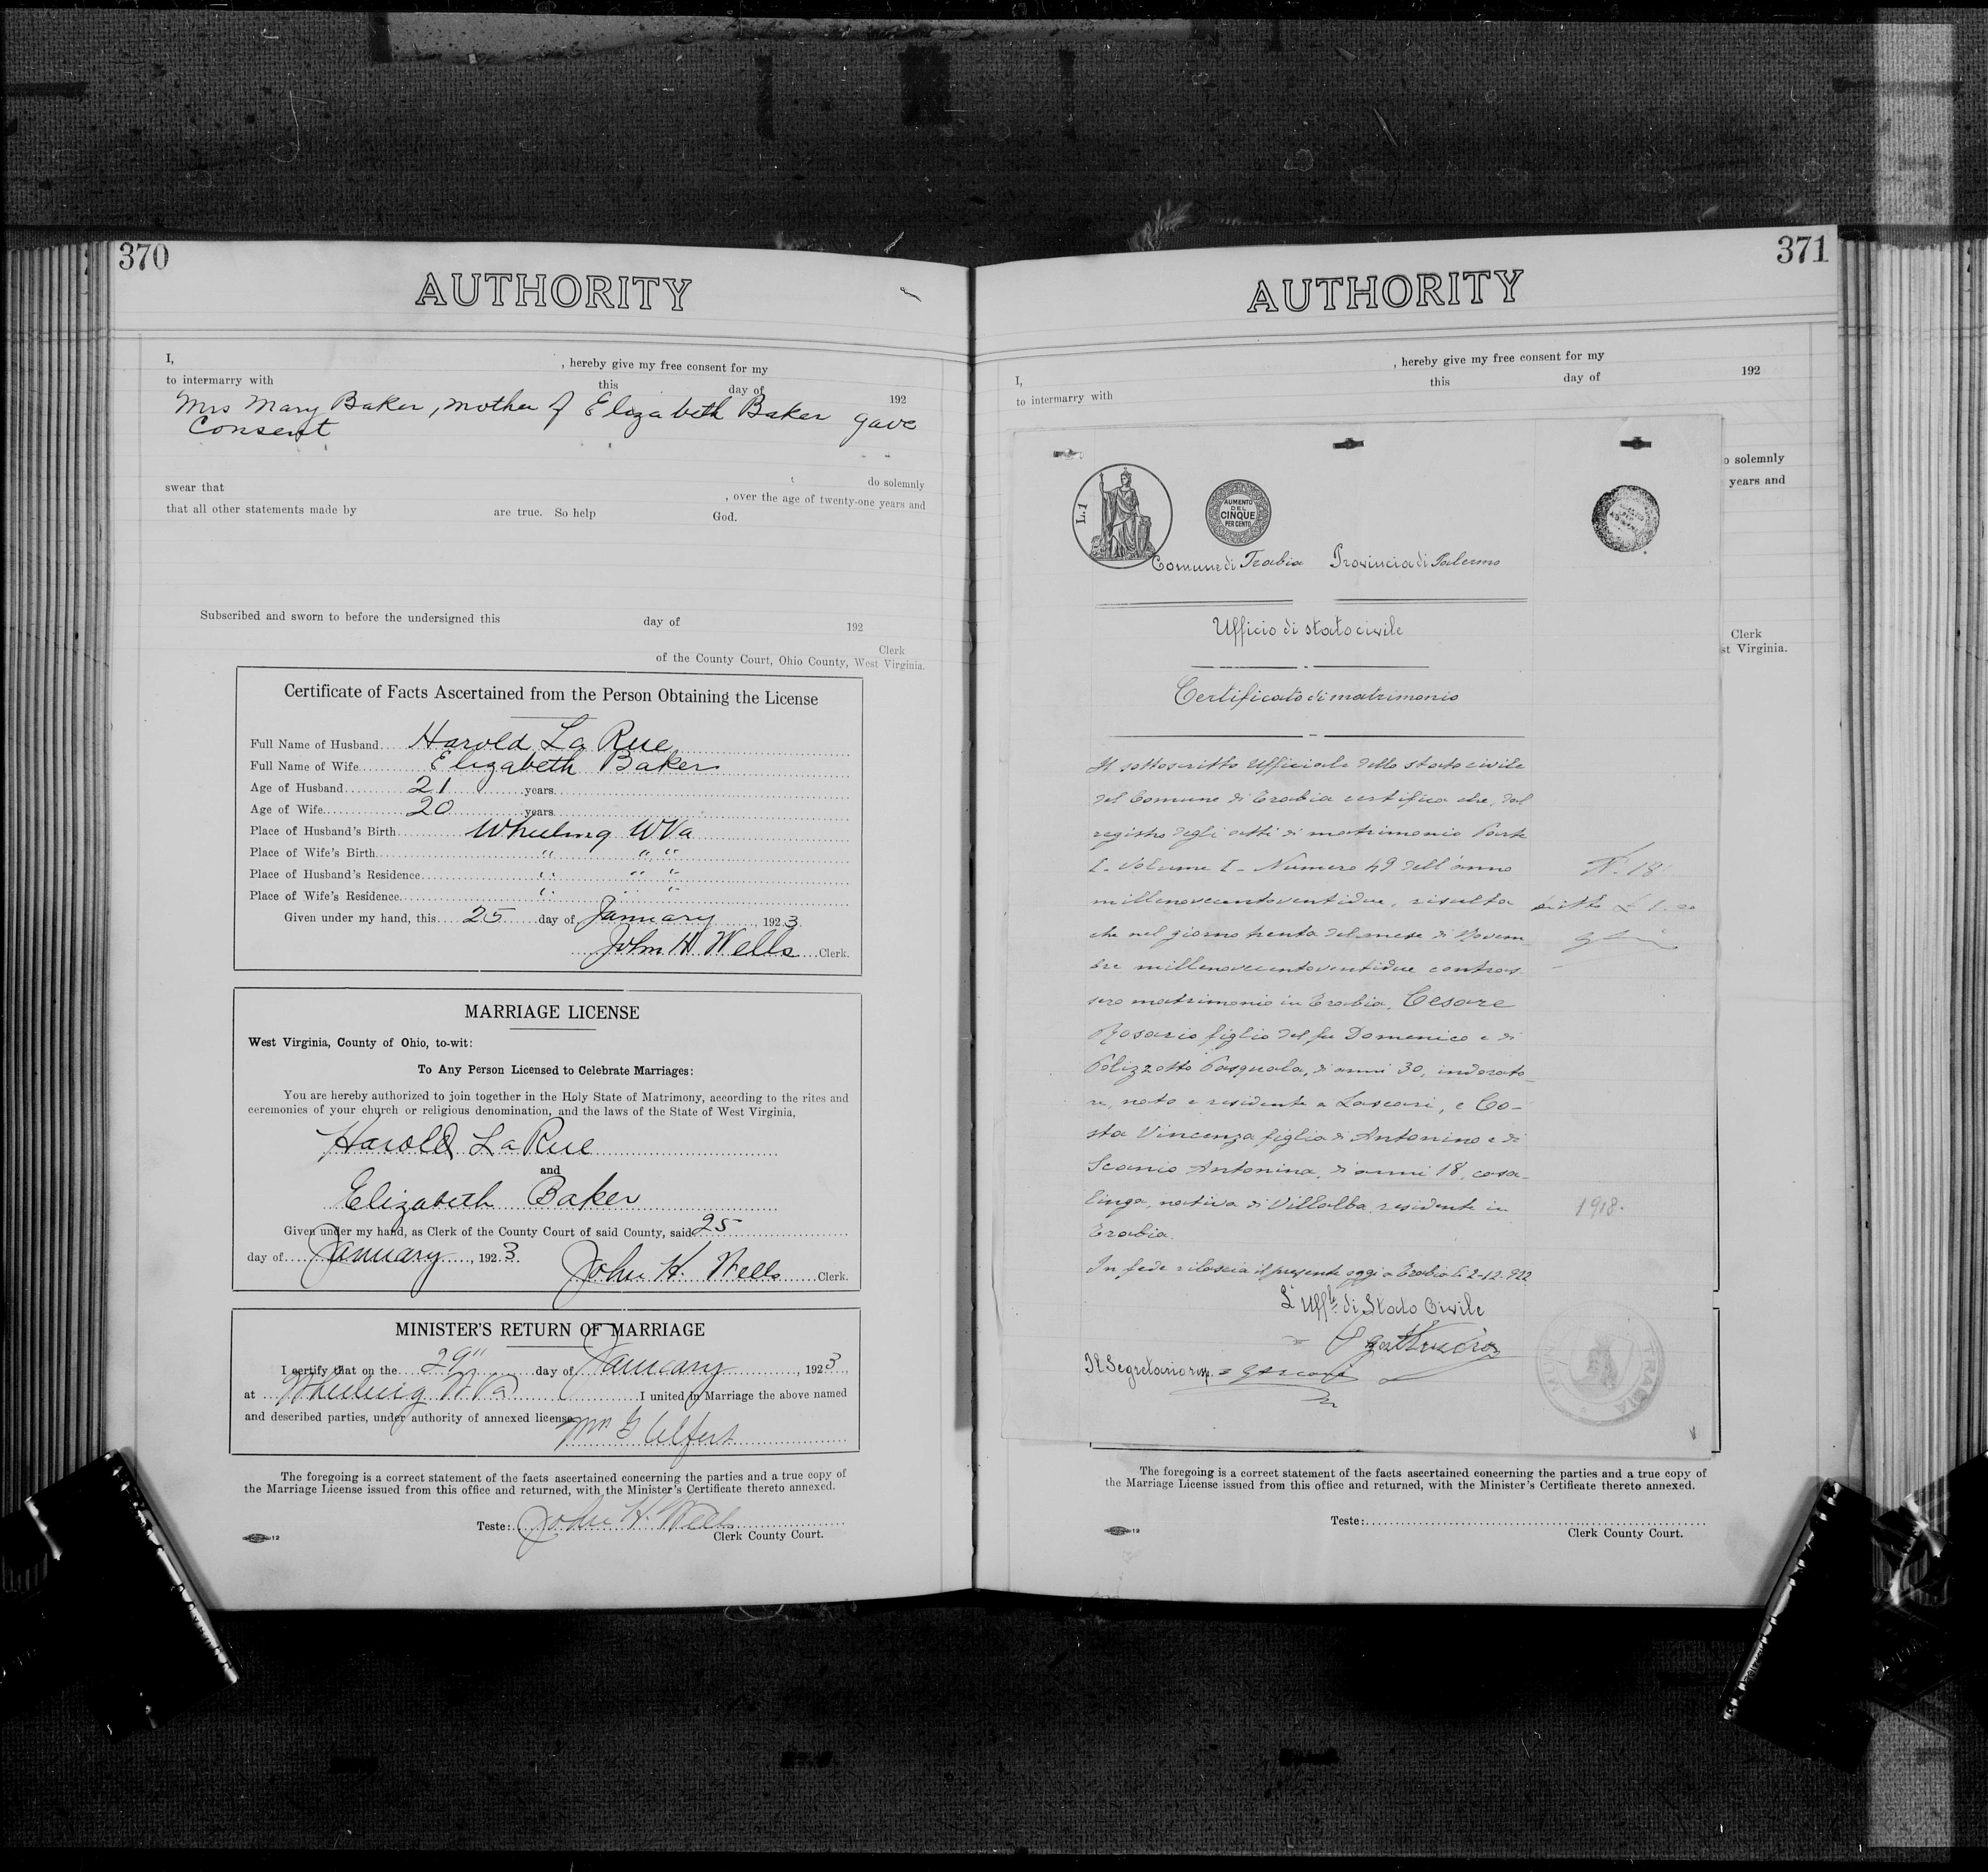 370
AUTHORITY
I, , hereby give my free consent for my
to intermarry with this day of 192
Mrs Mary Baker, mother of Elizabeth Baker gave
Consent
do solemnly
swear that , over the age of twenty-one years and
that all other statements made by are true. So help God.
Subscribed and sworn to before the undersigned this day of 192
Clerk
of the County Court, Ohio County, West Virginia.
Certificate of Facts Ascertained from the Person Obtaining the License
Full Name of Husband Harold La Rue
Full Name of Wife Elizabeth Baker
Age of Husband 21 years
Age of Wife 20 years
Place of Husband's Birth Wheeling W Va
Place of Wife's Birth " " "
Place of Husband's Residence " " "
Place of Wife's Residence " " "
Given under my hand, this 25 day of January, 1923.
John H Wells Clerk.
MARRIAGE LICENSE
West Virginia, County of Ohio, to-wit:
To Any Person Licensed to Celebrate Marriages:
You are hereby authorized to join together in the Holy State of Matrimony, according to the rites and
ceremonies of your church or religious denomination, and the laws of the State of West Virginia,
Harold La Rue
and
Elizabeth Baker
Given under my hand, as Clerk of the County Court of said County, said 25
day of January, 1923. John H. Wells Clerk.
MINISTER'S RETURN OF MARRIAGE
I certify that on the 29" day of January, 1923,
at Wheeling W Va I united in Marriage the above named
and described parties, under authority of annexed license.
Wm G Ulfert
The foregoing is a correct statement of the facts ascertained concerning the parties and a true copy of
the Marriage License issued from this office and returned, with the Minister's Certificate thereto annexed.
Teste: John H. Wells
Clerk County Court.
12
371
AUTHORITY
I, , hereby give my free consent for my
to intermarry with this day of 192
o solemnly
years and
Clerk
st Virginia.
L.1
AUMENTO
DEL
CINQUE
PER CENTO
Comune di Trabia Provincia di Palermo
Ufficio di stato civile
Certificato di matrimonio
Il sottoscritto Ufficiale dello stato civile
del Comune di Trabia certifica che, dal
registro degli atti di matrimonio Parte
I. Volume I - Numero 49 dell'anno
millenovecentoventidue, risulta
che nel giorno trenta del mese di Novem-
bre millenovecentoventidue contras-
sero matrimonio in Trabia, Cesare
Rosario figlio del fu Domenico e di
Polizzotto Pasquala, di anni 30, indorato-
re, nato e residente a Lascari, e Co-
sta Vincenza figlia di Antonino e di
Scanio Antonina, di anni 18, casa-
linga, nativa di Villalba residente in
Trabia.
In fede rilascia il presente oggi a Trabia li 2-12-922
L'Uffle di Stato Civile
Il Segretario
N. 18
1918.
TRABIA
The foregoing is a correct statement of the facts ascertained concerning the parties and a true copy of
the Marriage License issued from this office and returned, with the Minister's Certificate thereto annexed.
Teste:
Clerk County Court.
12